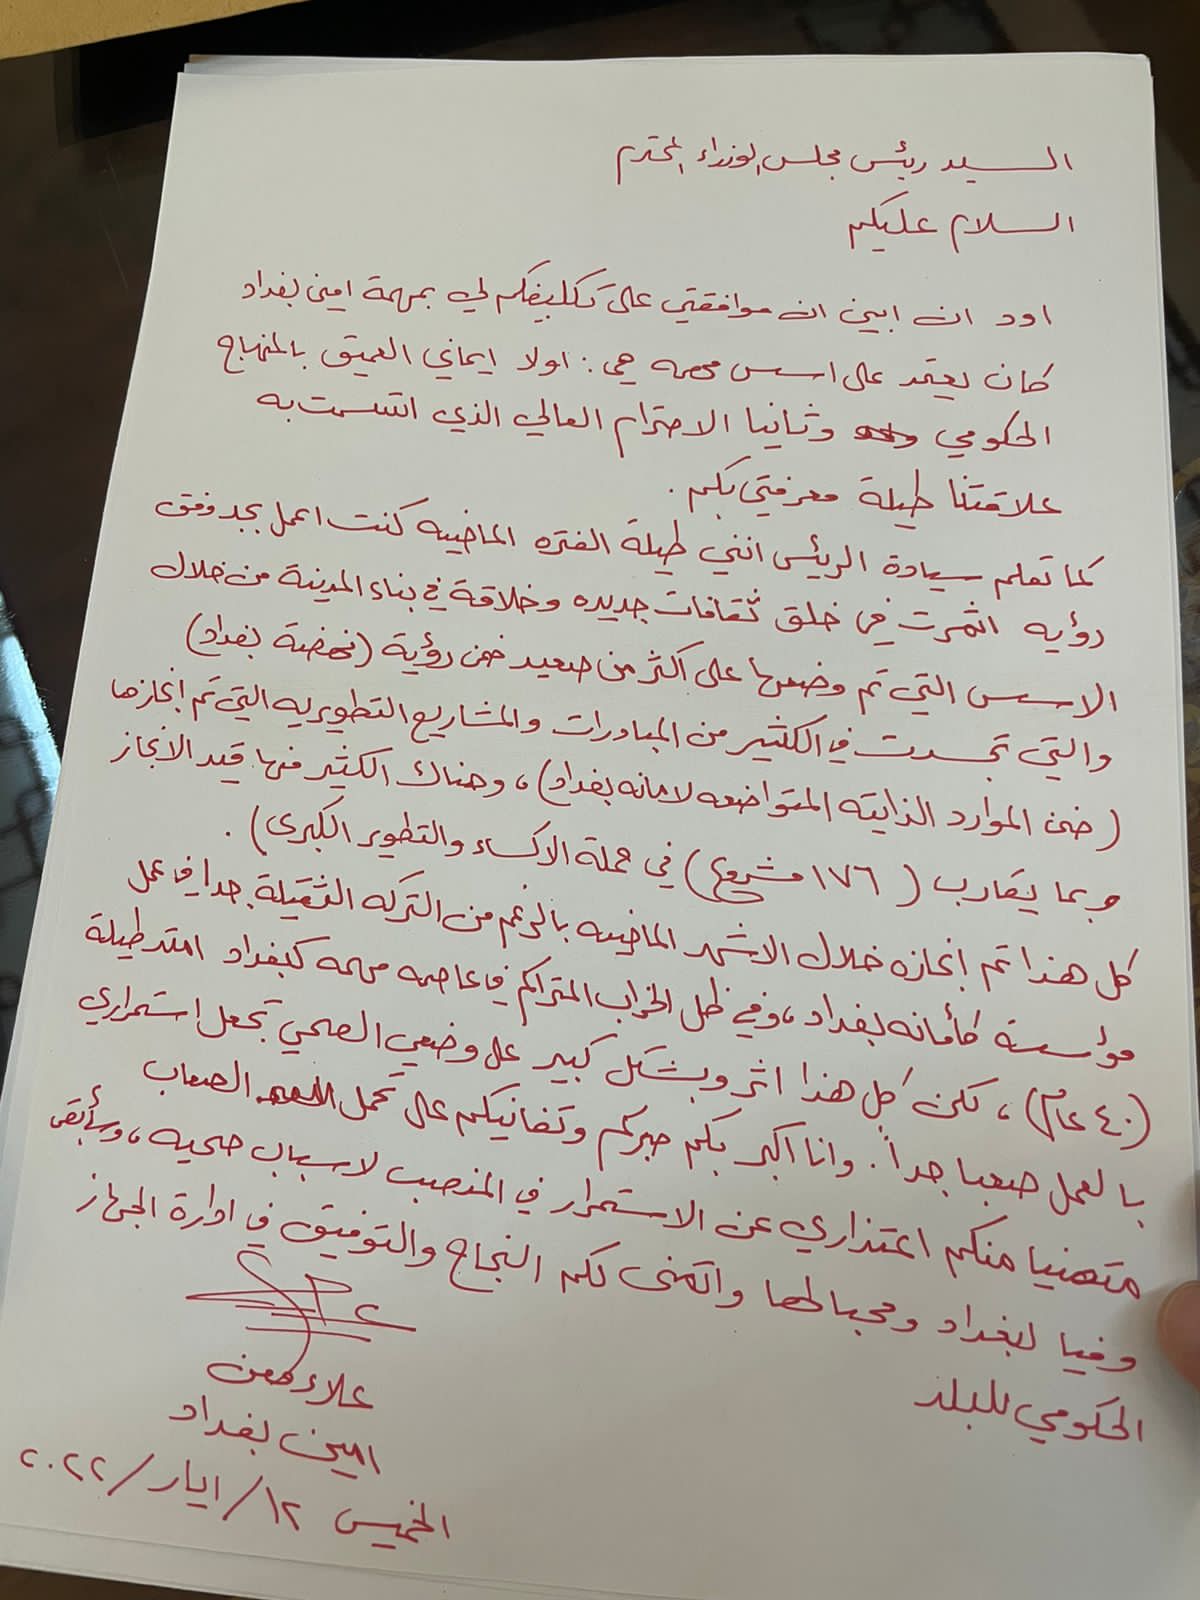 السيد رئيس مجلس الوزراء المحترم
السلام عليكم
اود ان ابين ان موافقتي على تكليفكم لي بمهمة امين بغداد
كان يعتمد على اسس مهمه هي : اولا ايماني العميق بالمنهاج
الحكومي وثانيا الاحترام العالي الذي اتسمت به
علاقتنا طيلة معرفتي بكم .
كما تعلم سيادة الرئيس انني طيلة الفتره الماضيه كنت اعمل بجد وفق
رؤيه اثمرت في خلق ثقافات جديده وخلاقة في بناء المدينة من خلال
الاسس التي تم وضعها على اكثر من صعيد ضمن رؤية (نهضة بغداد)
والتي تجسدت في الكثير من المبادرات والمشاريع التطويريه التي تم إنجازها
(ضمن الموارد الذاتيه المتواضعه لامانه بغداد) ، وهناك الكثير منها قيد الانجاز
وبما يقارب (١٧٦ مشروع) في حملة الاكساء والتطوير الكبرى) .
كل هذا تم إنجازه خلال الاشهر الماضيه بالرغم من التركه الثقيلة جدا في عمل
مؤسسة كأمانه بغداد ، وفي ظل الخراب المتراكم في عاصمه مهمه كبغداد امتد طيلة
(٤٠ عام) ، لكن كل هذا اثر وبشكل كبير على وضعي الصحي تجعل استمراري
بالعمل صعبا جداً . وانا اكبر بكم صبركم وتفانيكم على تحمل الصعاب
متمنيا منكم اعتذاري عن الاستمرار في المنصب لاسباب صحيه ، وسأبقى
وفيا لبغداد ومحباً لها واتمنى لكم النجاح والتوفيق في ادارة الجهاز
الحكومي للبلد
علاء معن
امين بغداد
الخميس ١٢/ ايار / ٢٠٢٢